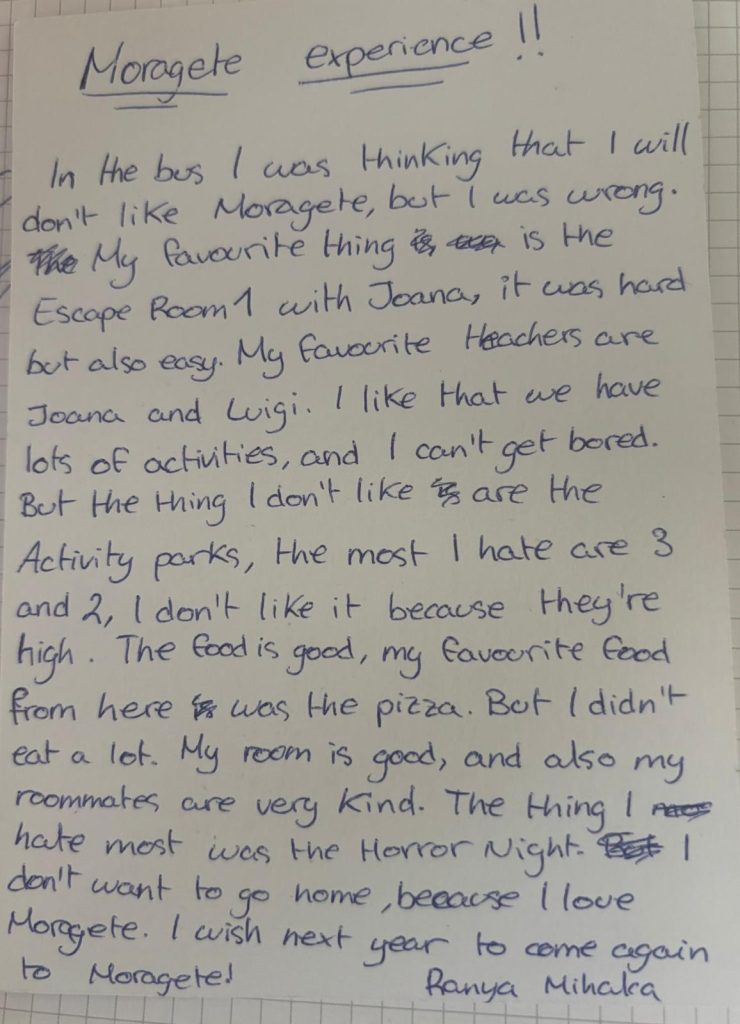 Moragete experience!!
In the bus I was thinking that I will
don't like Moragete, but I was wrong.
My favourite thing is the
Escape Room 1 with Joana, it was hard
but also easy. My favourite teachers are
Joana and Luigi. I like that we have
lots of activities, and I can't get bored.
But the thing I don't like are the
Activity parks, the most I hate are 3
and 2, I don't like it because they're
high. The food is good, my favourite food
from here was the pizza. But I didn't
eat a lot. My room is good, and also my
roommates are very kind. The thing I
hate most was the Horror Night. I
don't want to go home, because I love
Moragete. I wish next year to come again
to Moragete!
Ranya Mihaka